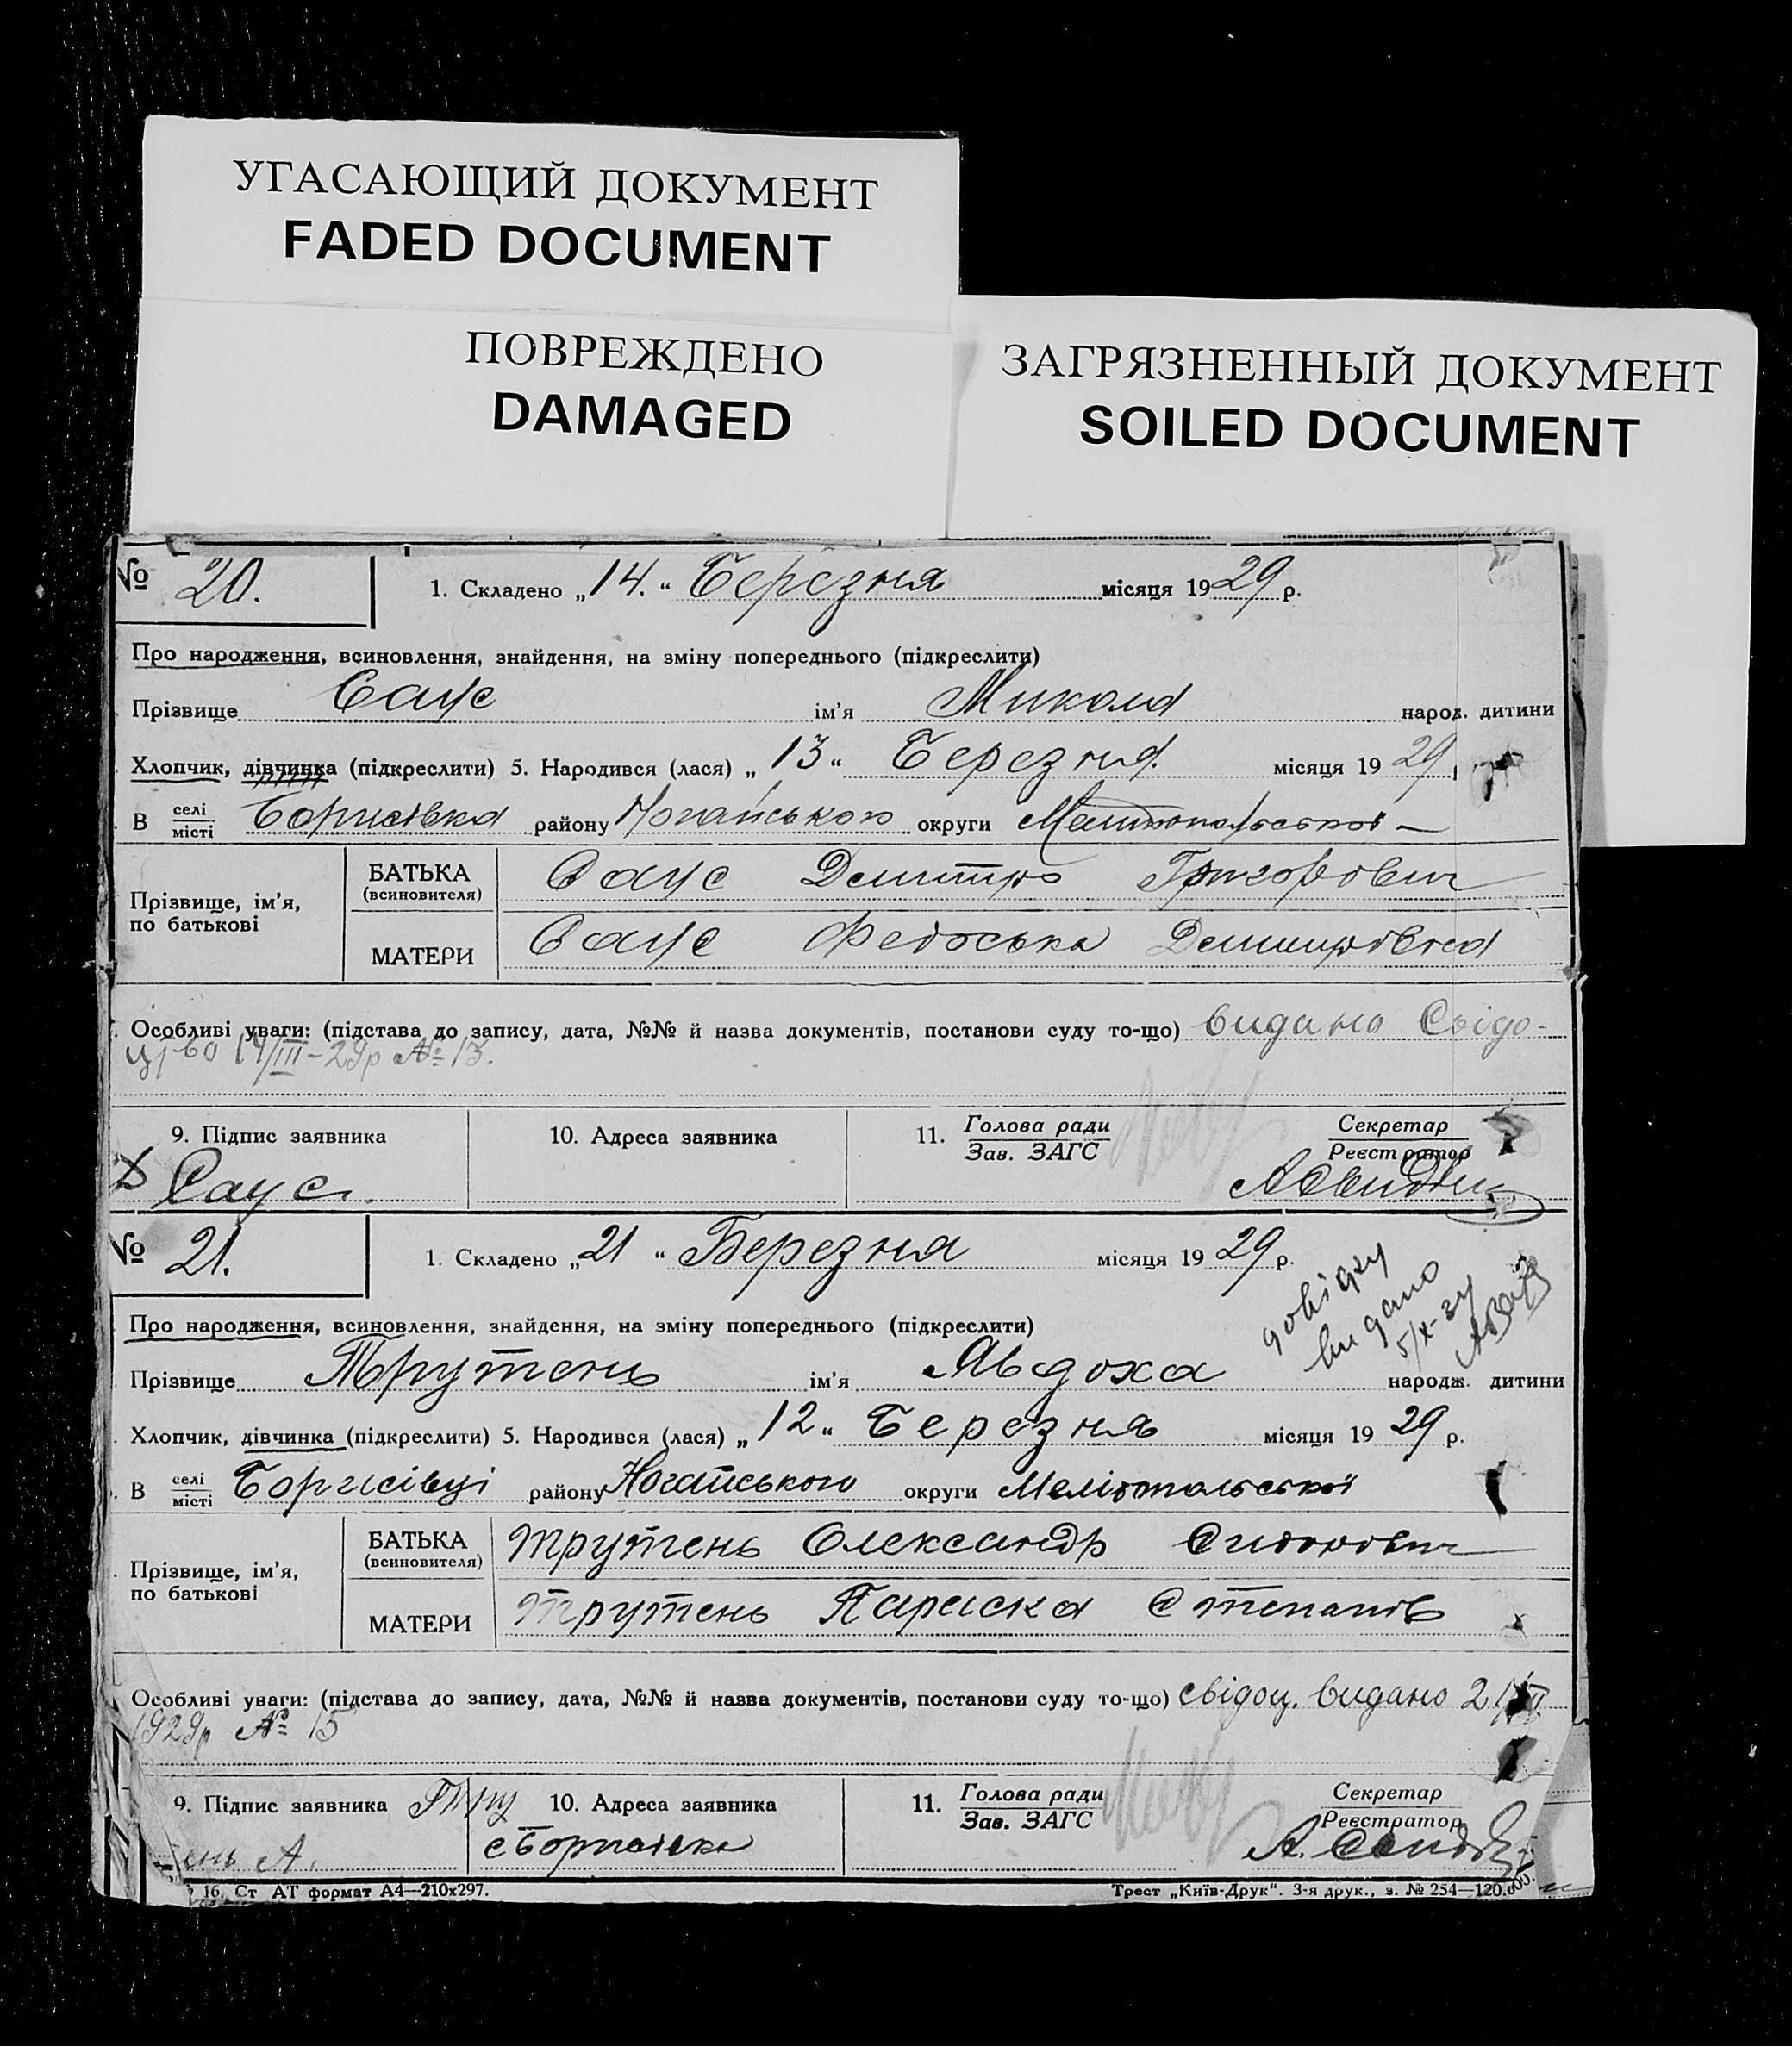 УГАСАЮЩИЙ ДОКУМЕНТ
FADED DOCUMENT
ПОВРЕЖДЕНО
DAMAGED
ЗАГРЯЗНЕННЫЙ ДОКУМЕНТ
SOILED DOCUMENT
№ 20. 1. Складено „14.“ Березня місяця 1929 р.
Про народження, всиновлення, знайдення, на зміну попереднього (підкреслити)
Прізвище Саус ім'я Микола народ. дитини
Хлопчик, дівчинка (підкреслити) 5. Народився (лася) „13“ Березня місяця 1929
В селі місті Борисівка району Ногайського округи Мелитопольської
Прізвище, ім'я, по батькові
БАТЬКА (всиновителя) Саус Дмитро Григорович
МАТЕРИ Саус Федоська
Особливі уваги: (підстава до запису, дата, №№ й назва документів, постанови суду то-що) видано Свідо-
цтво 14/III-29р № 13.
9. Підпис заявника 10. Адреса заявника 11. Голова ради Зав. ЗАГС Секретар Реєстратор
Саус
№ 21. 1. Складено „21“ Березня місяця 1929 р.
довідку
видано
5/X-34
Про народження, всиновлення, знайдення, на зміну попереднього (підкреслити)
Прізвище Трутень ім'я Явдоха народж. дитини
Хлопчик, дівчинка (підкреслити) 5. Народився (лася) „12“ Березня місяця 1929 р.
В селі місті Борисівці району Ногайського округи Меліотпольської
Прізвище, ім'я, по батькові
БАТЬКА (всиновителя) Трутень Олександр Сидорович
МАТЕРИ Трутень Параска Степанів
Особливі уваги: (підстава до запису, дата, №№ й назва документів, постанови суду то-що) свідоц. видано 21/III
1929р № 15
9. Підпис заявника Тру 10. Адреса заявника 11. Голова ради Зав. ЗАГС Секретар Реєстратор
ень А. с Борисівка
16. Ст АТ формат А4—210x297. Трест „Київ-Друк“. 3-я друк., з. № 254—120.000.